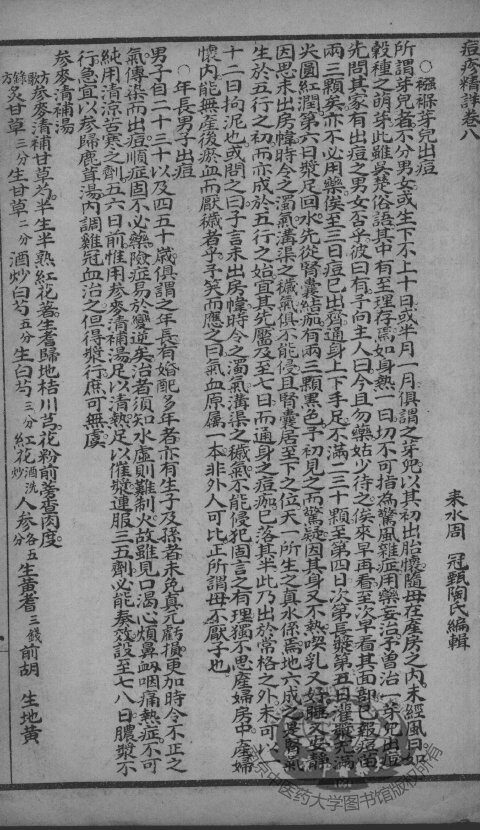 痘疹精詳卷八
來水周 冠甄陶氏編輯
○襁褓芽兒出痘
所謂芽兒者不分男女或生下不上十日或半月一月俱謂之芽兒以其初出胎懷隨母在產房之內未經風日如
穀種之萌芽此雖吳楚俗語其中有至理存焉如身熱一日切不可指為驚風雜症用藥妄治予曾治一芽兒出痘
先問其家有出痘之男女否乎彼曰有予向主人曰今且勿藥姑少待之俟來早再看至次早看其面部已報痘苗
兩三顆矣亦不必用藥俟至三日痘已出齊通身上下手足不滿二三十顆至第四日次第長漿第五日灌漿充滿
尖圓紅潤第六日漿足回水先從腎囊結痂有兩三顆黑色予初見之而驚疑因其身又不熱喫乳又好睡又安靜
因思未出房幃時令之濁氣溝渠之穢氣俱不能侵且腎囊居至下之位天一所生之真水係焉地六成之是腎氣
生於五行之初而亦成於五行之始宜其先靨及至七日而通身之痘痂已落其半此乃出於常格之外未可以
十二日拘泥也或問之曰子言未出房幃時令之濁氣溝渠之穢氣不能侵犯固言之有理獨不思產婦房中產婦
懷內能無產後瘀血而厭穢者乎予笑而應之曰氣血原屬一本非外人可比正所謂母不厭子也
○年長男子出痘
男子自二十三十以及四五十歲俱謂之年長有婚配多年者亦有生子及孫者未免真元虧損更加時令不正之
氣傳染而出痘順症固不必藥險症易於變逆矣治者須知水虛則難制火故雖見口渴心煩鼻衄咽痛熱症不可
純用清涼苦寒之劑五六日前惟用參麥清補湯足以清熱足以催漿連服三五劑必能奏效設至七八日膿漿不
行急宜以參歸鹿茸湯內調雞冠血治之但得漿行庶可無虞
參麥清補湯
方歌 參麥清補甘草芍半生半熟紅花著生耆歸地桔川芎花粉前蒡查肉度
錄方 炙甘草三分 生甘草二分 酒炒白芍五分 生白芍三分 紅花酒洗炒 人參各五分 生黃耆三錢 前胡 生地黃